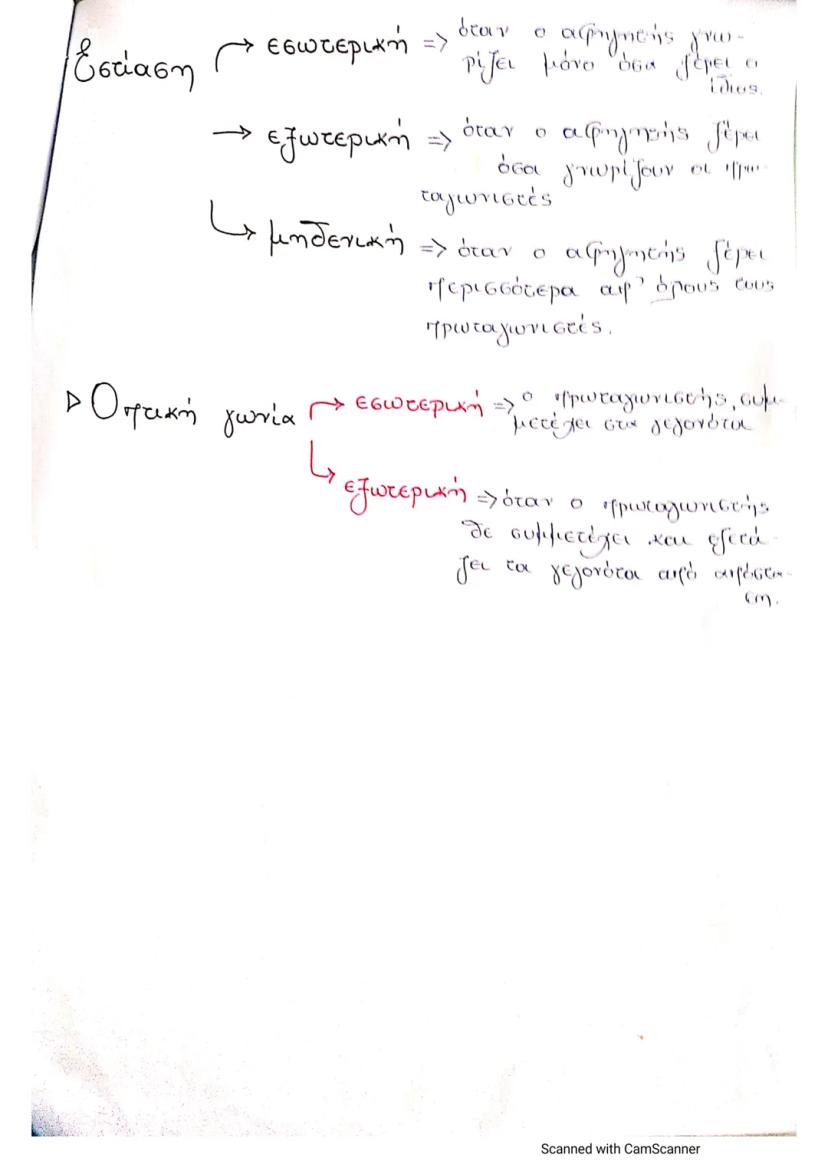 Εστίαση → εσωτερική => όταν ο αφηγητής γνω-
ρίζει μόνο όσα ξέρει ο
ίδιος.
→ εξωτερική => όταν ο αφηγητής ξέρει
όσα γνωρίζουν οι πρω-
ταγωνιστές
→ μηδενική => όταν ο αφηγητής ξέρει
περισσότερα απ' όλους τους
πρωταγωνιστές.
▷ Οπτική γωνία → εσωτερική => ο πρωταγωνιστής συμ-
μετέχει στα γεγονότα
→ εξωτερική => όταν ο πρωταγωνιστής
δε συμμετέχει και εξετά-
ζει τα γεγονότα από απόστα-
ση.
Scanned with CamScanner